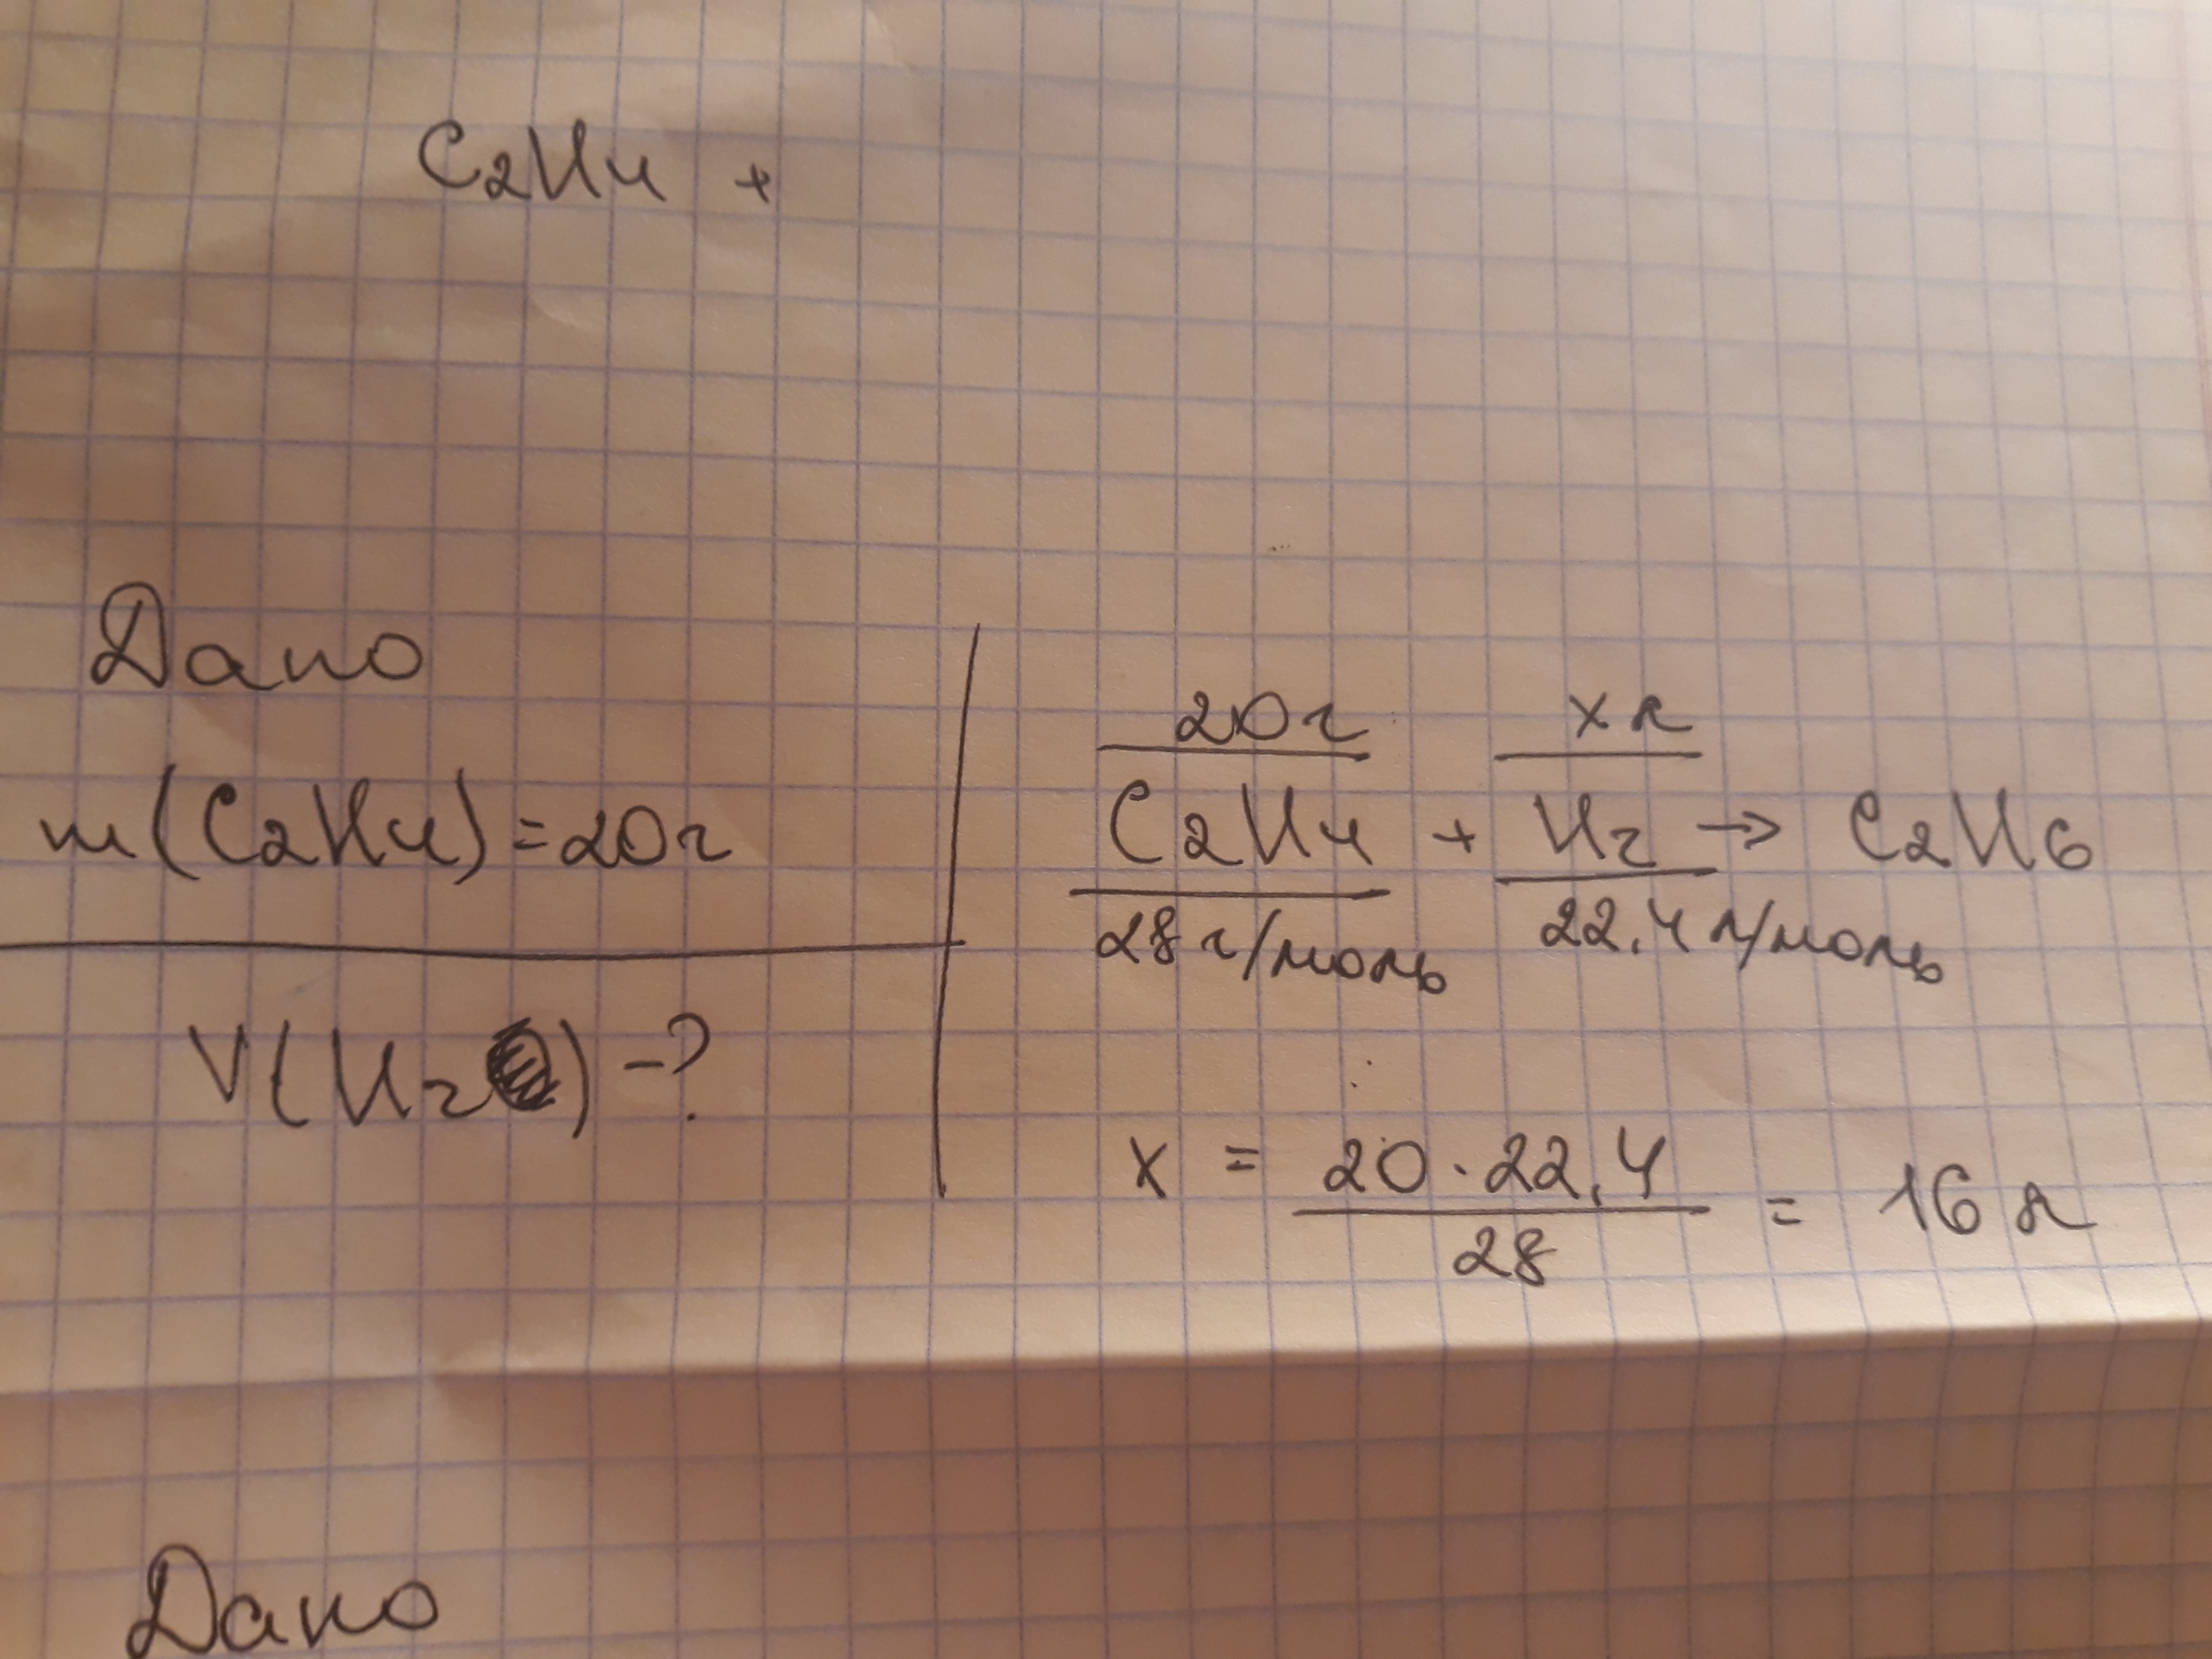 C2H4 +
Дано
m(C2H4)=20г
V(H2)-?
20г x л
C2H4 + H2 → C2H6
28 г/моль 22,4 л/моль
x = 20·22,4 / 28 = 16 л
Дано